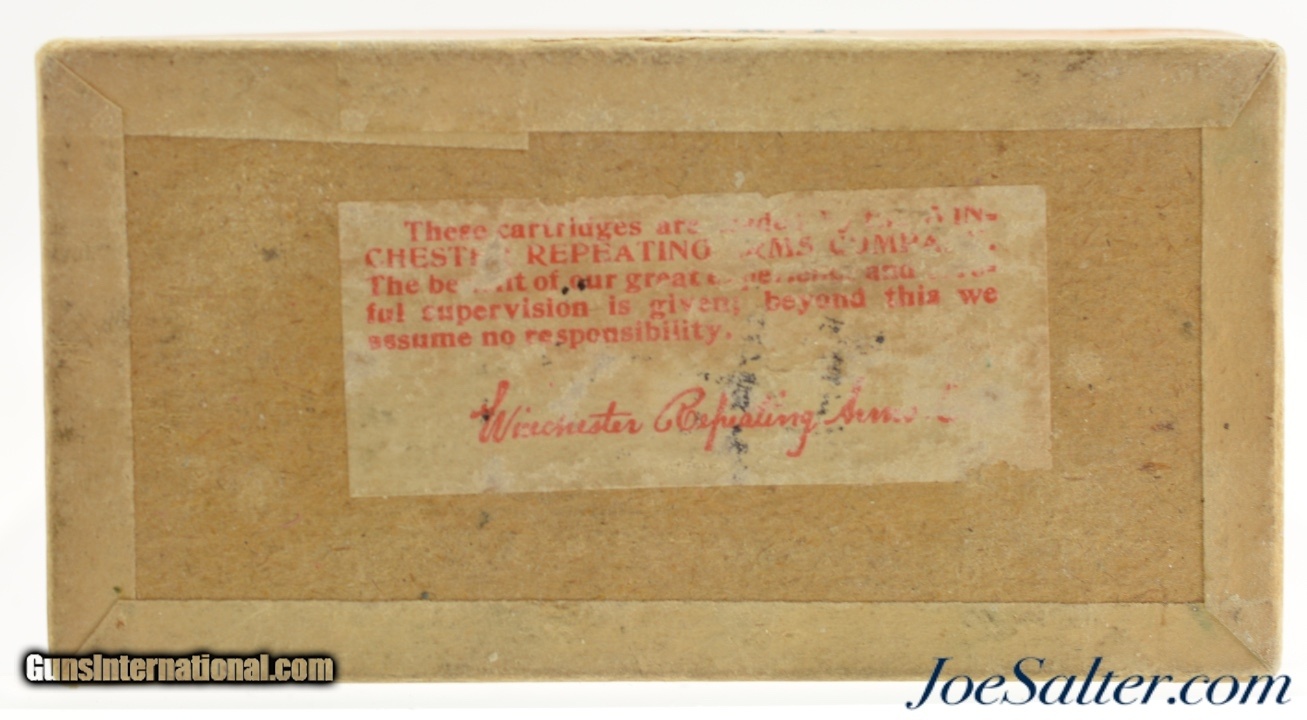 These cartridges are IN-
REPEATING
The of our great and
ful supervision is given; beyond this we
assume no responsibility.
Winchester Repeating Arms
GunsInternational.com
JoeSalter.com